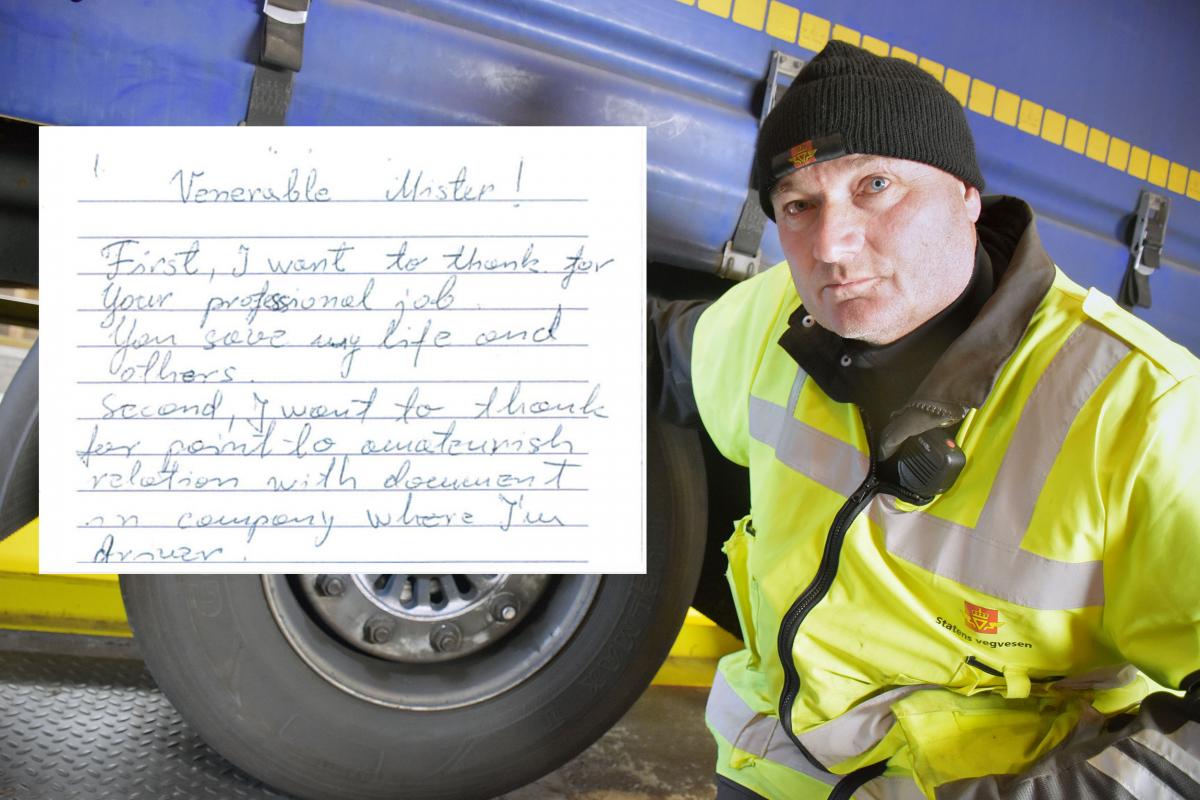 Venerable Mister!
First, I want to thank for
Your professional job.
You save my life and
others.
Second, I want to thank
for point to amateurish
relation with document
in company where I'm
driver.
Statens vegvesen